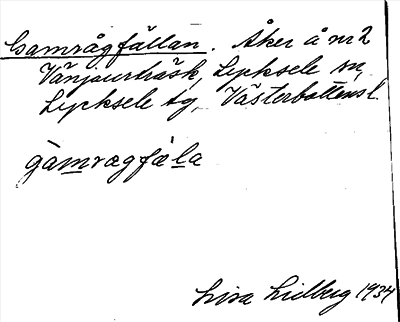 Gamrågfällan. Åker å nr 2
Vänjaurträsk, Lycksele sn,
Lycksele tg, Västerbottens l.
gàmragfä̀la
Lisa Lidberg 1934